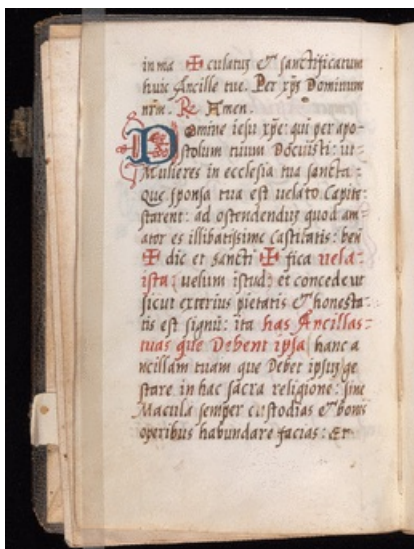 inma ✠ culatus & sanctificatum
huic Ancille tue. Per xp̄s Dominum
nr̄m. R̷ Amen.
Domine iesu xp̄e: qui per apo-
stolum tuum Docuisti: ut
Mulieres in ecclesia tua sancta:
que sponsa tua est velato Capite:
starent: ad ostendendūȝ quod am-
ator es illibatissime Castitatis: ben̄
✠ dic et sancti ✠ fica uela-
ista: uelum istud: et concede ut
sicut exterius pietatis & honesta-
tis est signū: ita has Ancillas:
tuas que Debent ipsa: hanc a
ncillam tuam que Debet ipsuȝ ge
stare in hac sacra religione: sine
Macula semper custodias & bonis
operibus habundare facias: Et